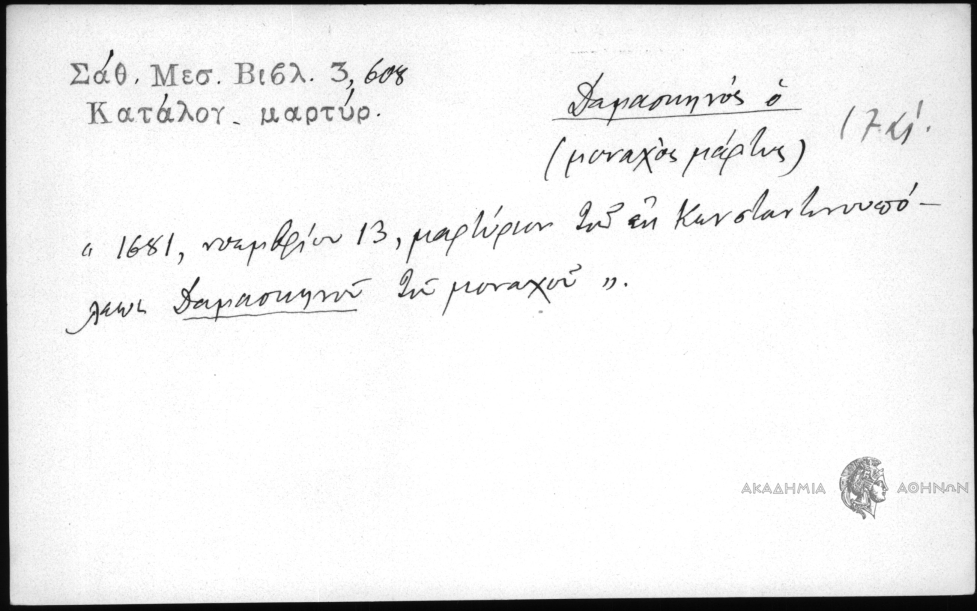 Σάθ. Μεσ. Βιβλ. 3, 608
Κατάλογ. μαρτύρ.
Δαμασκηνός ὁ
(μοναχὸς μάρτυς)
17 αἰ.
“ 1681, νοεμβρίου 13, μαρτύριον τοῦ ἐκ Κωνσταντινουπό-
λεως Δαμασκηνοῦ τοῦ μοναχοῦ ”.
ΑΚΑΔΗΜΙΑ ΑΘΗΝΩΝ